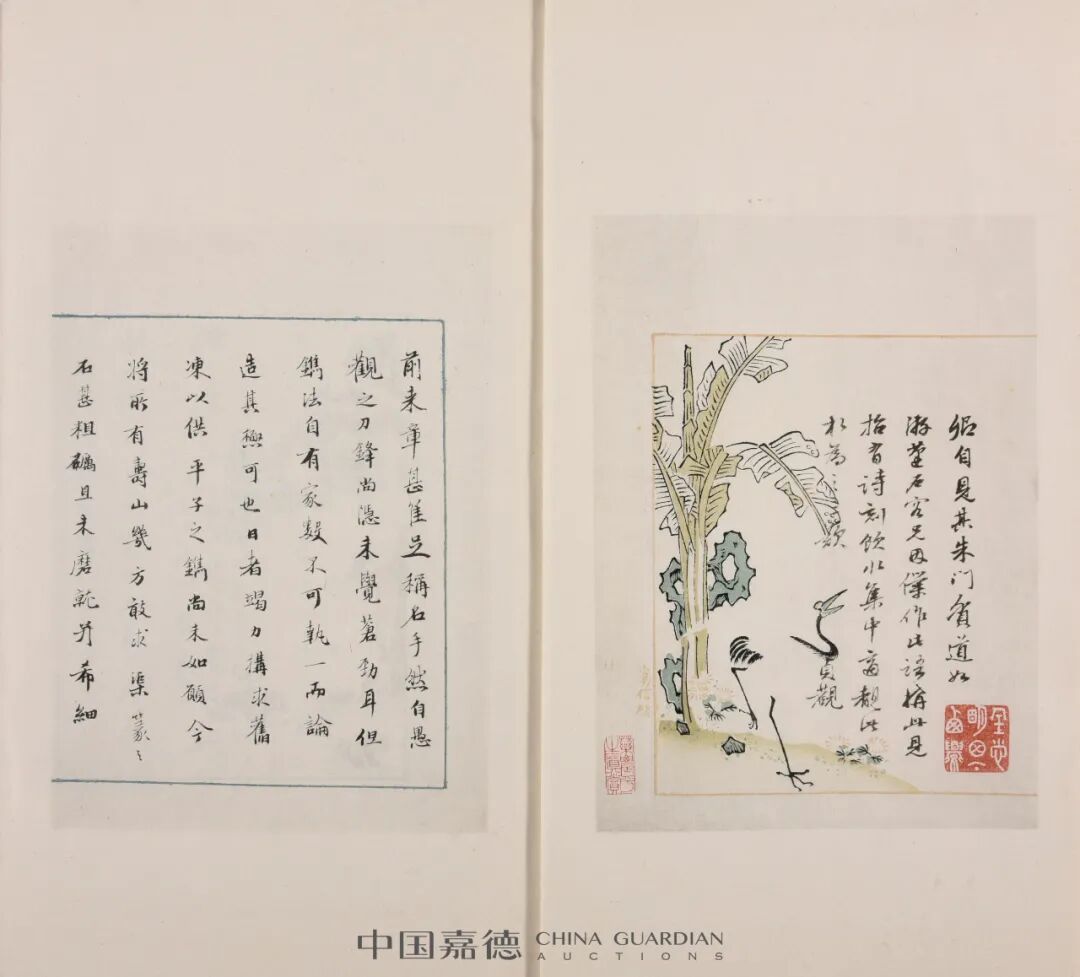 卿自見其朱門貧道如
游蓬戶容兄因僕作此語搆此見
招有詩刻飲水集中適覩此
札為之三歎
貞觀
前來章甚佳足稱名手然自愚
觀之刀鋒尚隱未覺蒼勁耳但
鐫法自有家數不可執一而論
造其極可也日者竭力搆求舊
凍以供平子之鐫尚未如願今
將所有壽山幾方敢求渠篆之
石甚粗礪且未磨就并希細
中国嘉德 CHINA GUARDIAN
AUCTIONS